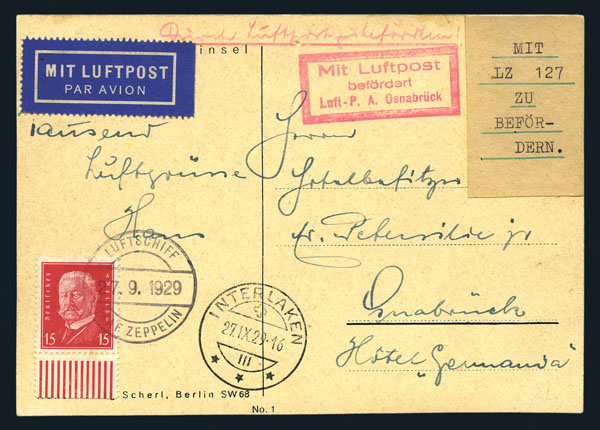 Durch Luftpost zu befördern!
insel
MIT LUFTPOST
PAR AVION
Mit Luftpost
befördert
Luft-P. A. Osnabrück
MIT
LZ 127
ZU
BEFÖR-
DERN.
Tausend
Luftgrüsse
Hans
Herrn
Hotelbesitzer
Fr. Petersilie jr
Osnabrück
Hôtel „Germania"
LUFTSCHIFF
27. 9. 1929
F ZEPPELIN
Deutsches
15 15
INTERLAKEN
27.IX.29-16
III
Scherl, Berlin SW68
No. 1